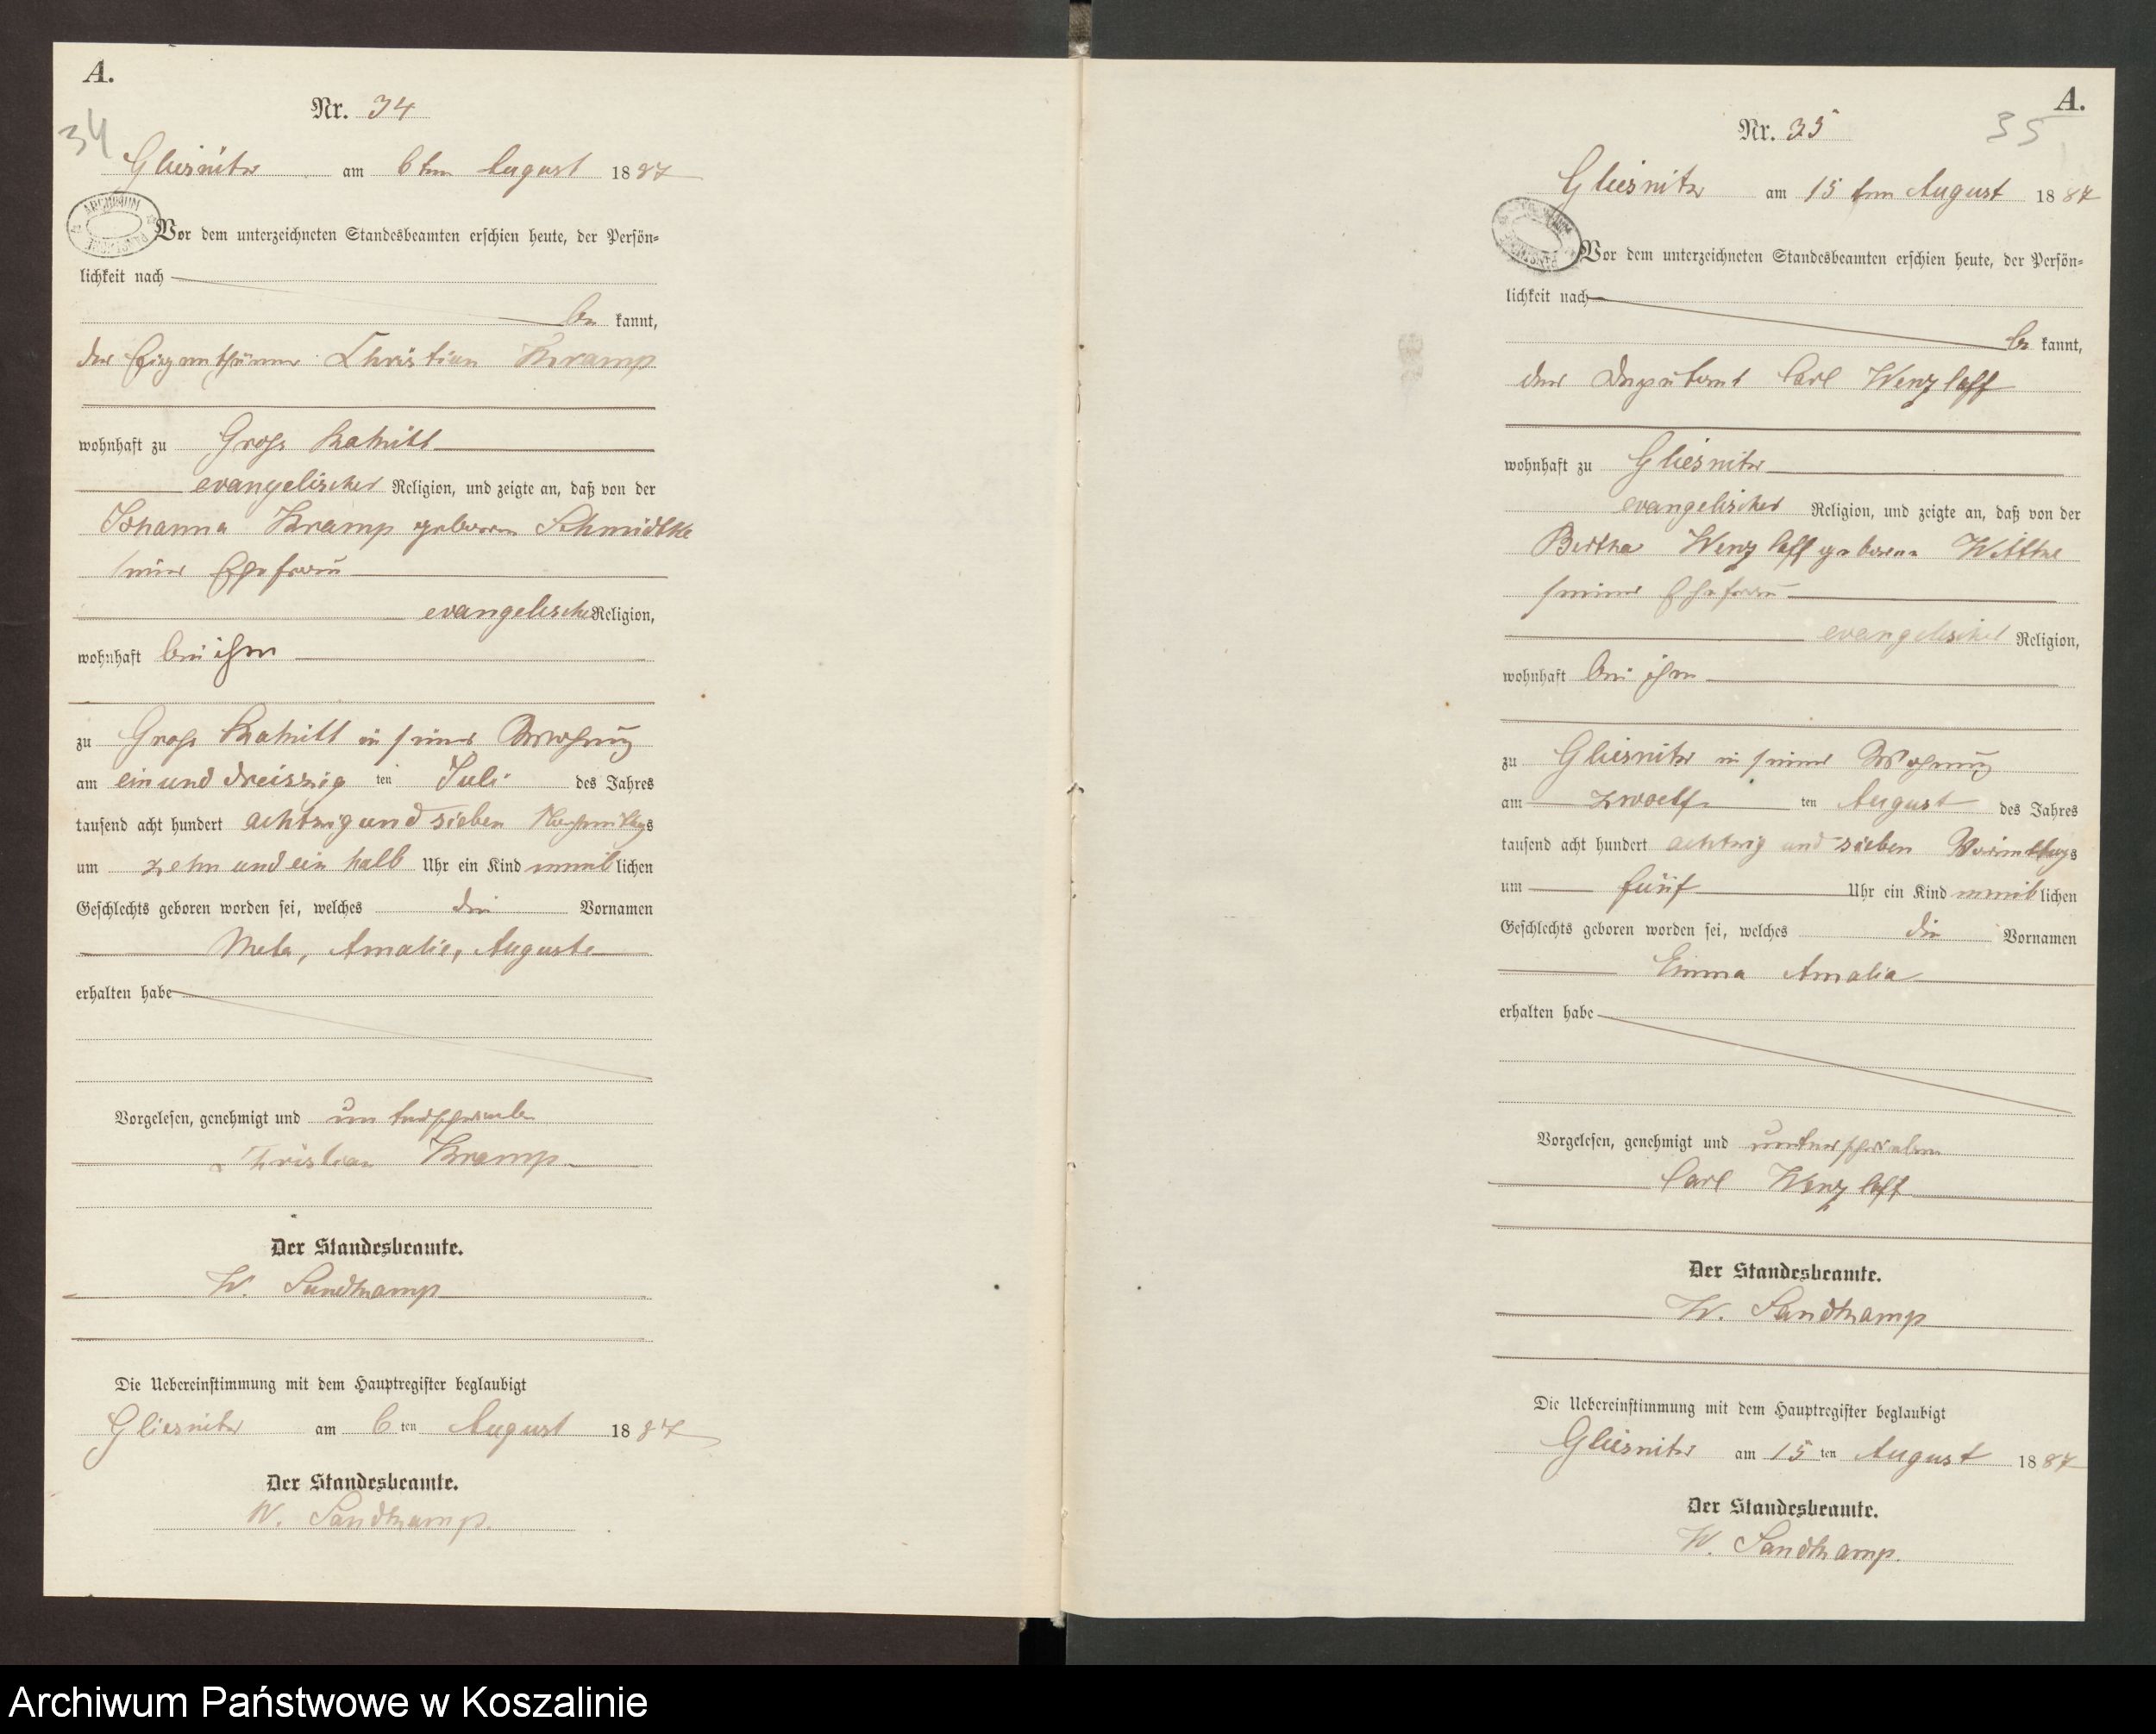 A.
Nr. 34
34
Gliesnitz am 6ten August 1887
ARCHIWUM
Vor dem unterzeichneten Standesbeamten erschien heute, der Persön=
lichkeit nach
be kannt,
der Eigenthümer Christian Kramp
wohnhaft zu Gross
evangelischer Religion, und zeigte an, daß von der
Johanna Kramp geborene Schmidtke
seiner Ehefrau
evangelischer Religion,
wohnhaft bei ihm
zu Gross in seiner Wohnung
am ein und dreissig ten Juli des Jahres
tausend acht hundert achtzig und sieben Nachmittags
um zehn und ein halb Uhr ein Kind weiblichen
Geschlechts geboren worden sei, welches die Vornamen
Meta, Amalie, Auguste
erhalten habe
Vorgelesen, genehmigt und unterschrieben
Christian Kramp
Der Standesbeamte.
W. Sandkamp
Die Uebereinstimmung mit dem Hauptregister beglaubigt
Gliesnitz am 6 ten August 1887
Der Standesbeamte.
W. Sandkamp.
A.
Nr. 35
35
Gliesnitz am 15 ten August 1887
Vor dem unterzeichneten Standesbeamten erschien heute, der Persön=
lichkeit nach
be kannt,
der Deputant Carl Wenzlaff
wohnhaft zu Gliesnitz
evangelischer Religion, und zeigte an, daß von der
Bertha Wenzlaff geborene Witthe
seiner Ehefrau
evangelischer Religion,
wohnhaft bei ihm
zu Gliesnitz in seiner Wohnung
am zwoelf ten August des Jahres
tausend acht hundert achtzig und sieben Vormittags
um fünf Uhr ein Kind weiblichen
Geschlechts geboren worden sei, welches die Vornamen
Emma Amalia
erhalten habe
Vorgelesen, genehmigt und unterschrieben
Carl Wenzlaff
Der Standesbeamte.
W. Sandkamp
Die Uebereinstimmung mit dem Hauptregister beglaubigt
Gliesnitz am 15 ten August 1887
Der Standesbeamte.
W. Sandkamp.
Archiwum Państwowe w Koszalinie